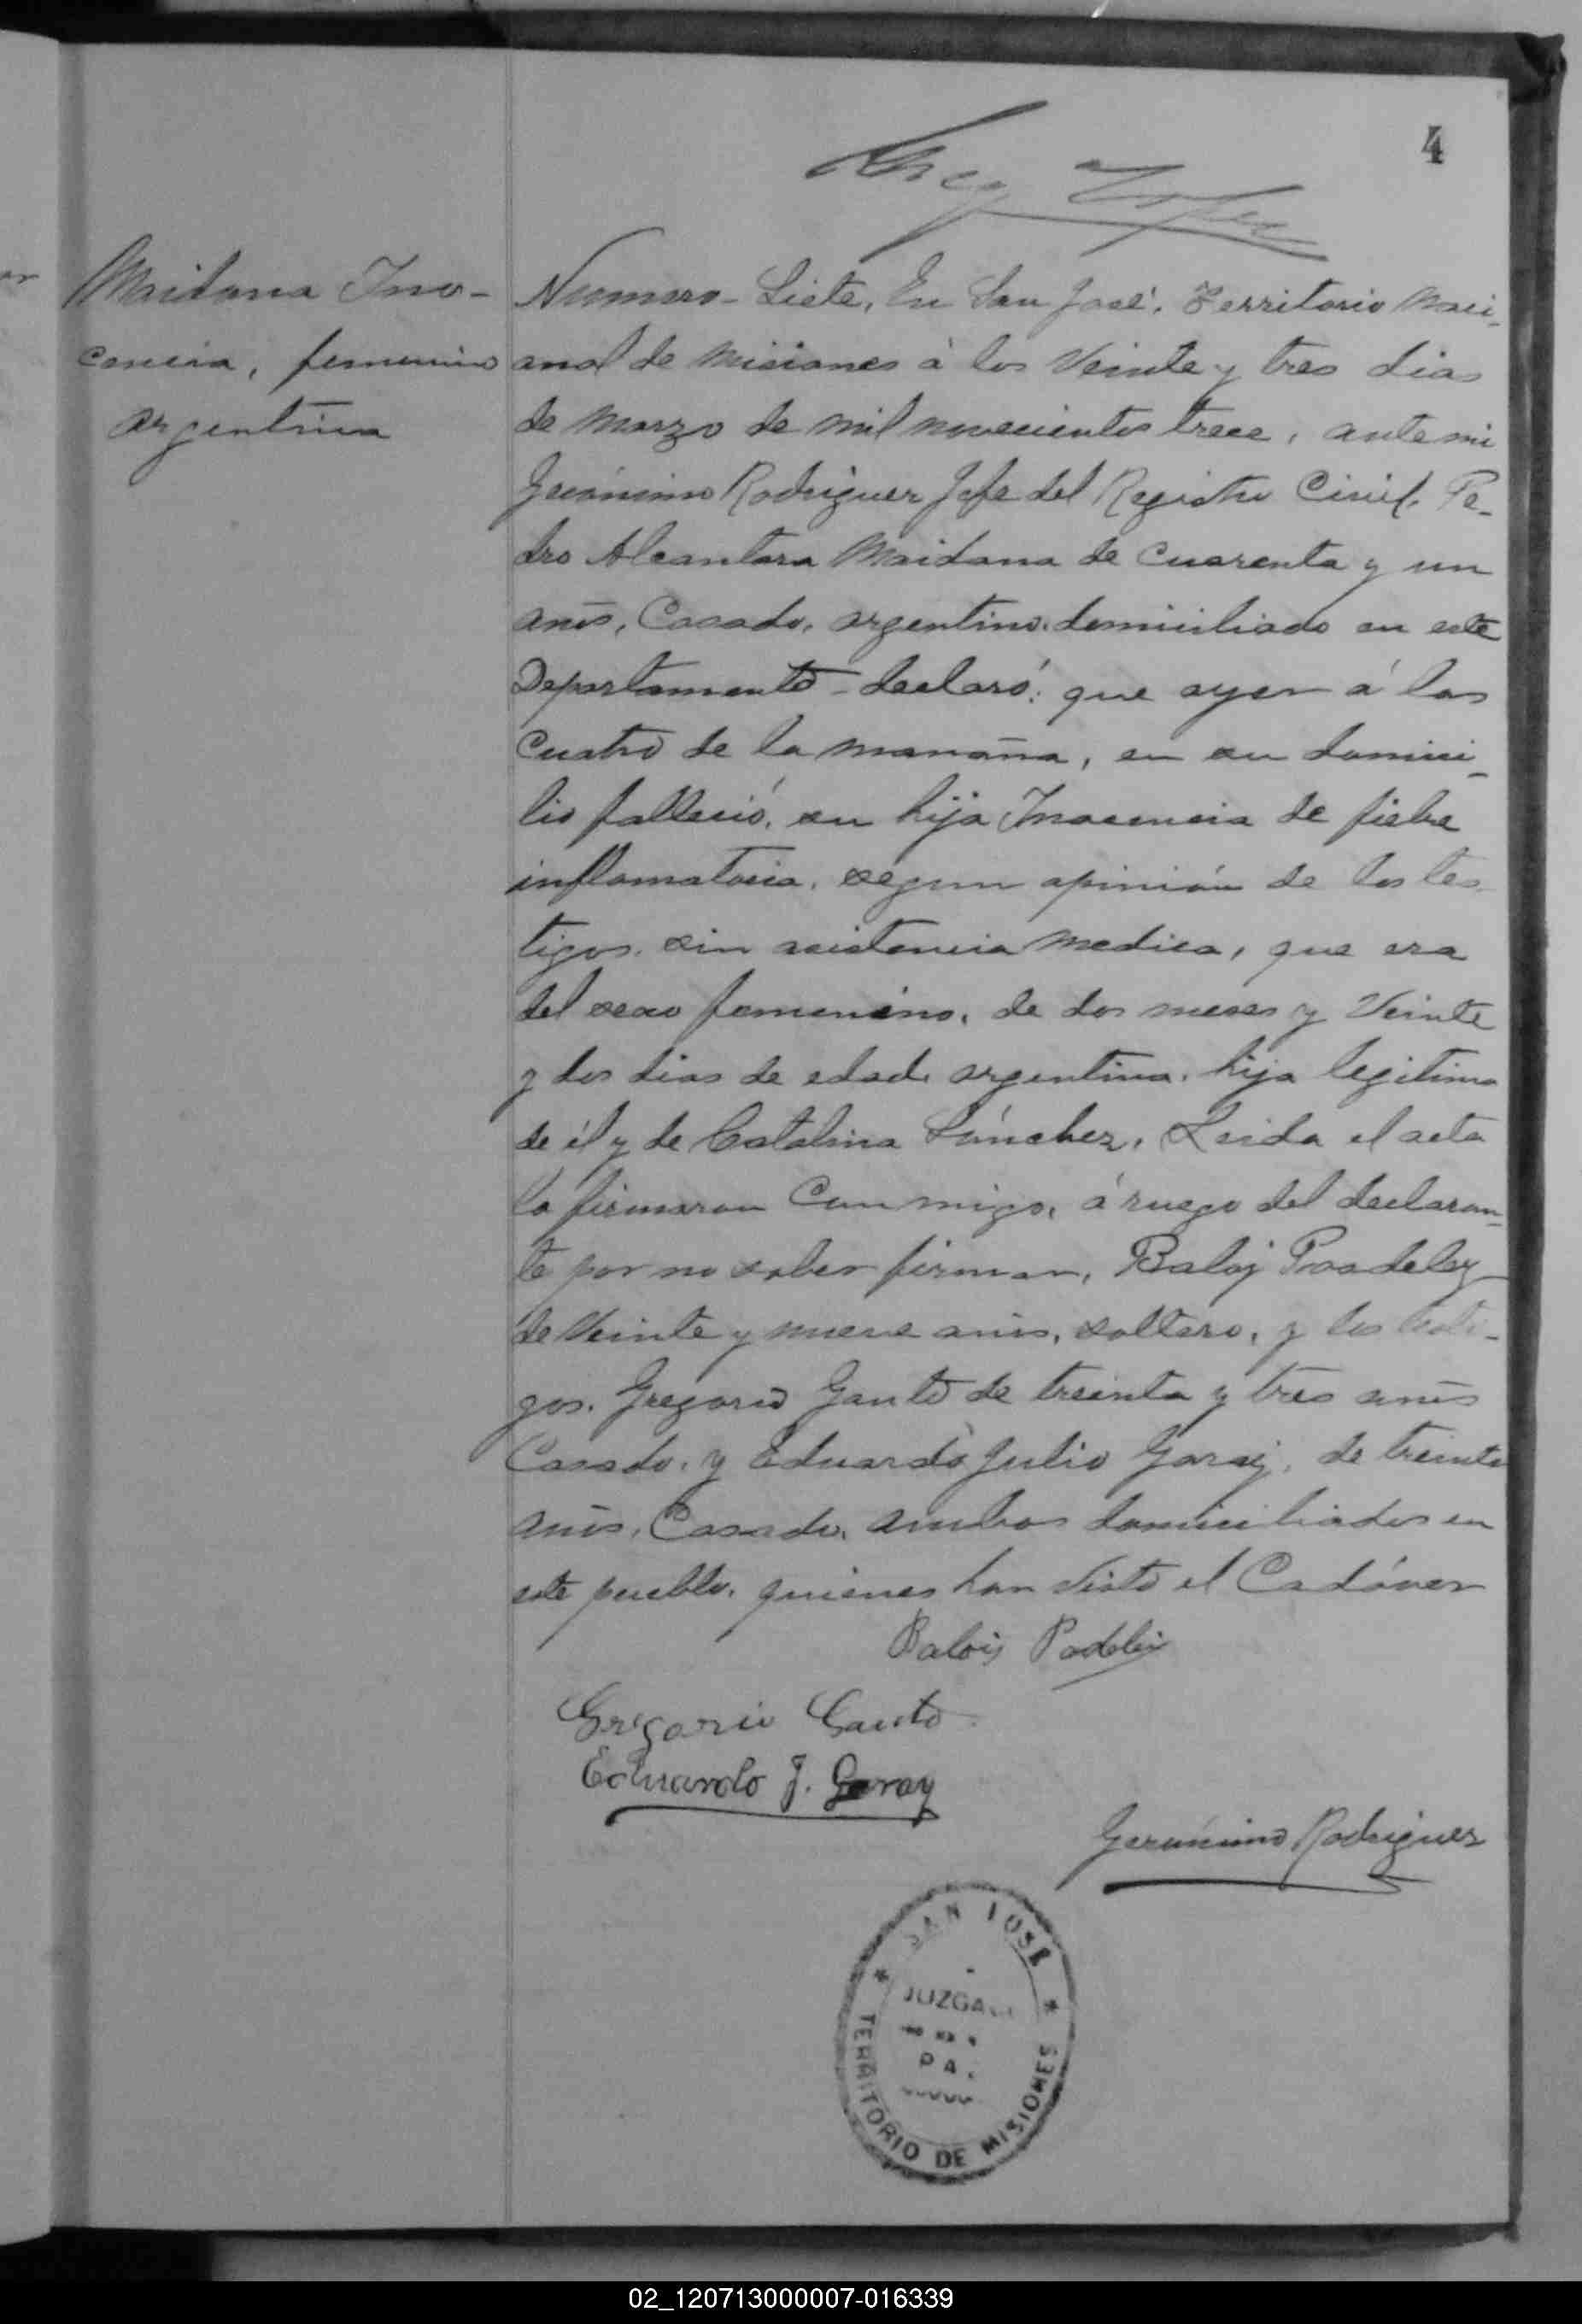 4
Maidana Ino-
cencia, femenino
argentina
Numero Siete, En San José, Territorio Naci-
onal de Misiones á los Veinte y tres dias
de Marzo de mil novecientos trece, ante mi
Gerónimo Rodriguez Jefe del Registro Civil, Pe-
dro Alcantara Maidana de Cuarenta y un
años, Casado, argentino, domiciliado en este
Departamento - declaró: que ayer á las
Cuatro de la mañana, en su domici-
lio falleció, su hija Inocencia de fiebre
inflamatoria, segun opinión de los tes-
tigos, sin asistencia medica, que era
del sexo femenino, de dos meses y Veinte
y dos dias de edad, argentina, hija legitima
de él y de Catalina Sánchez, Leida el acta
la firmaron Conmigo, á ruego del declaran-
te por no saber firmar, Baloy
de Veinte y nueve años, soltero, y los testi-
gos, Gregorio Gauto de treinta y tres años
Casado, y Eduardo Julio Garay, de treinta
años, Casado, ambos domiciliados en
este pueblo, quienes han Visto el Cadáver
Balois
Gregorio Gauto
Eduardo J. Garay
Gerónimo Rodriguez
SAN JOSE
JUZGA
PA
TERRITORIO DE MISIONES
02_120713000007-016339